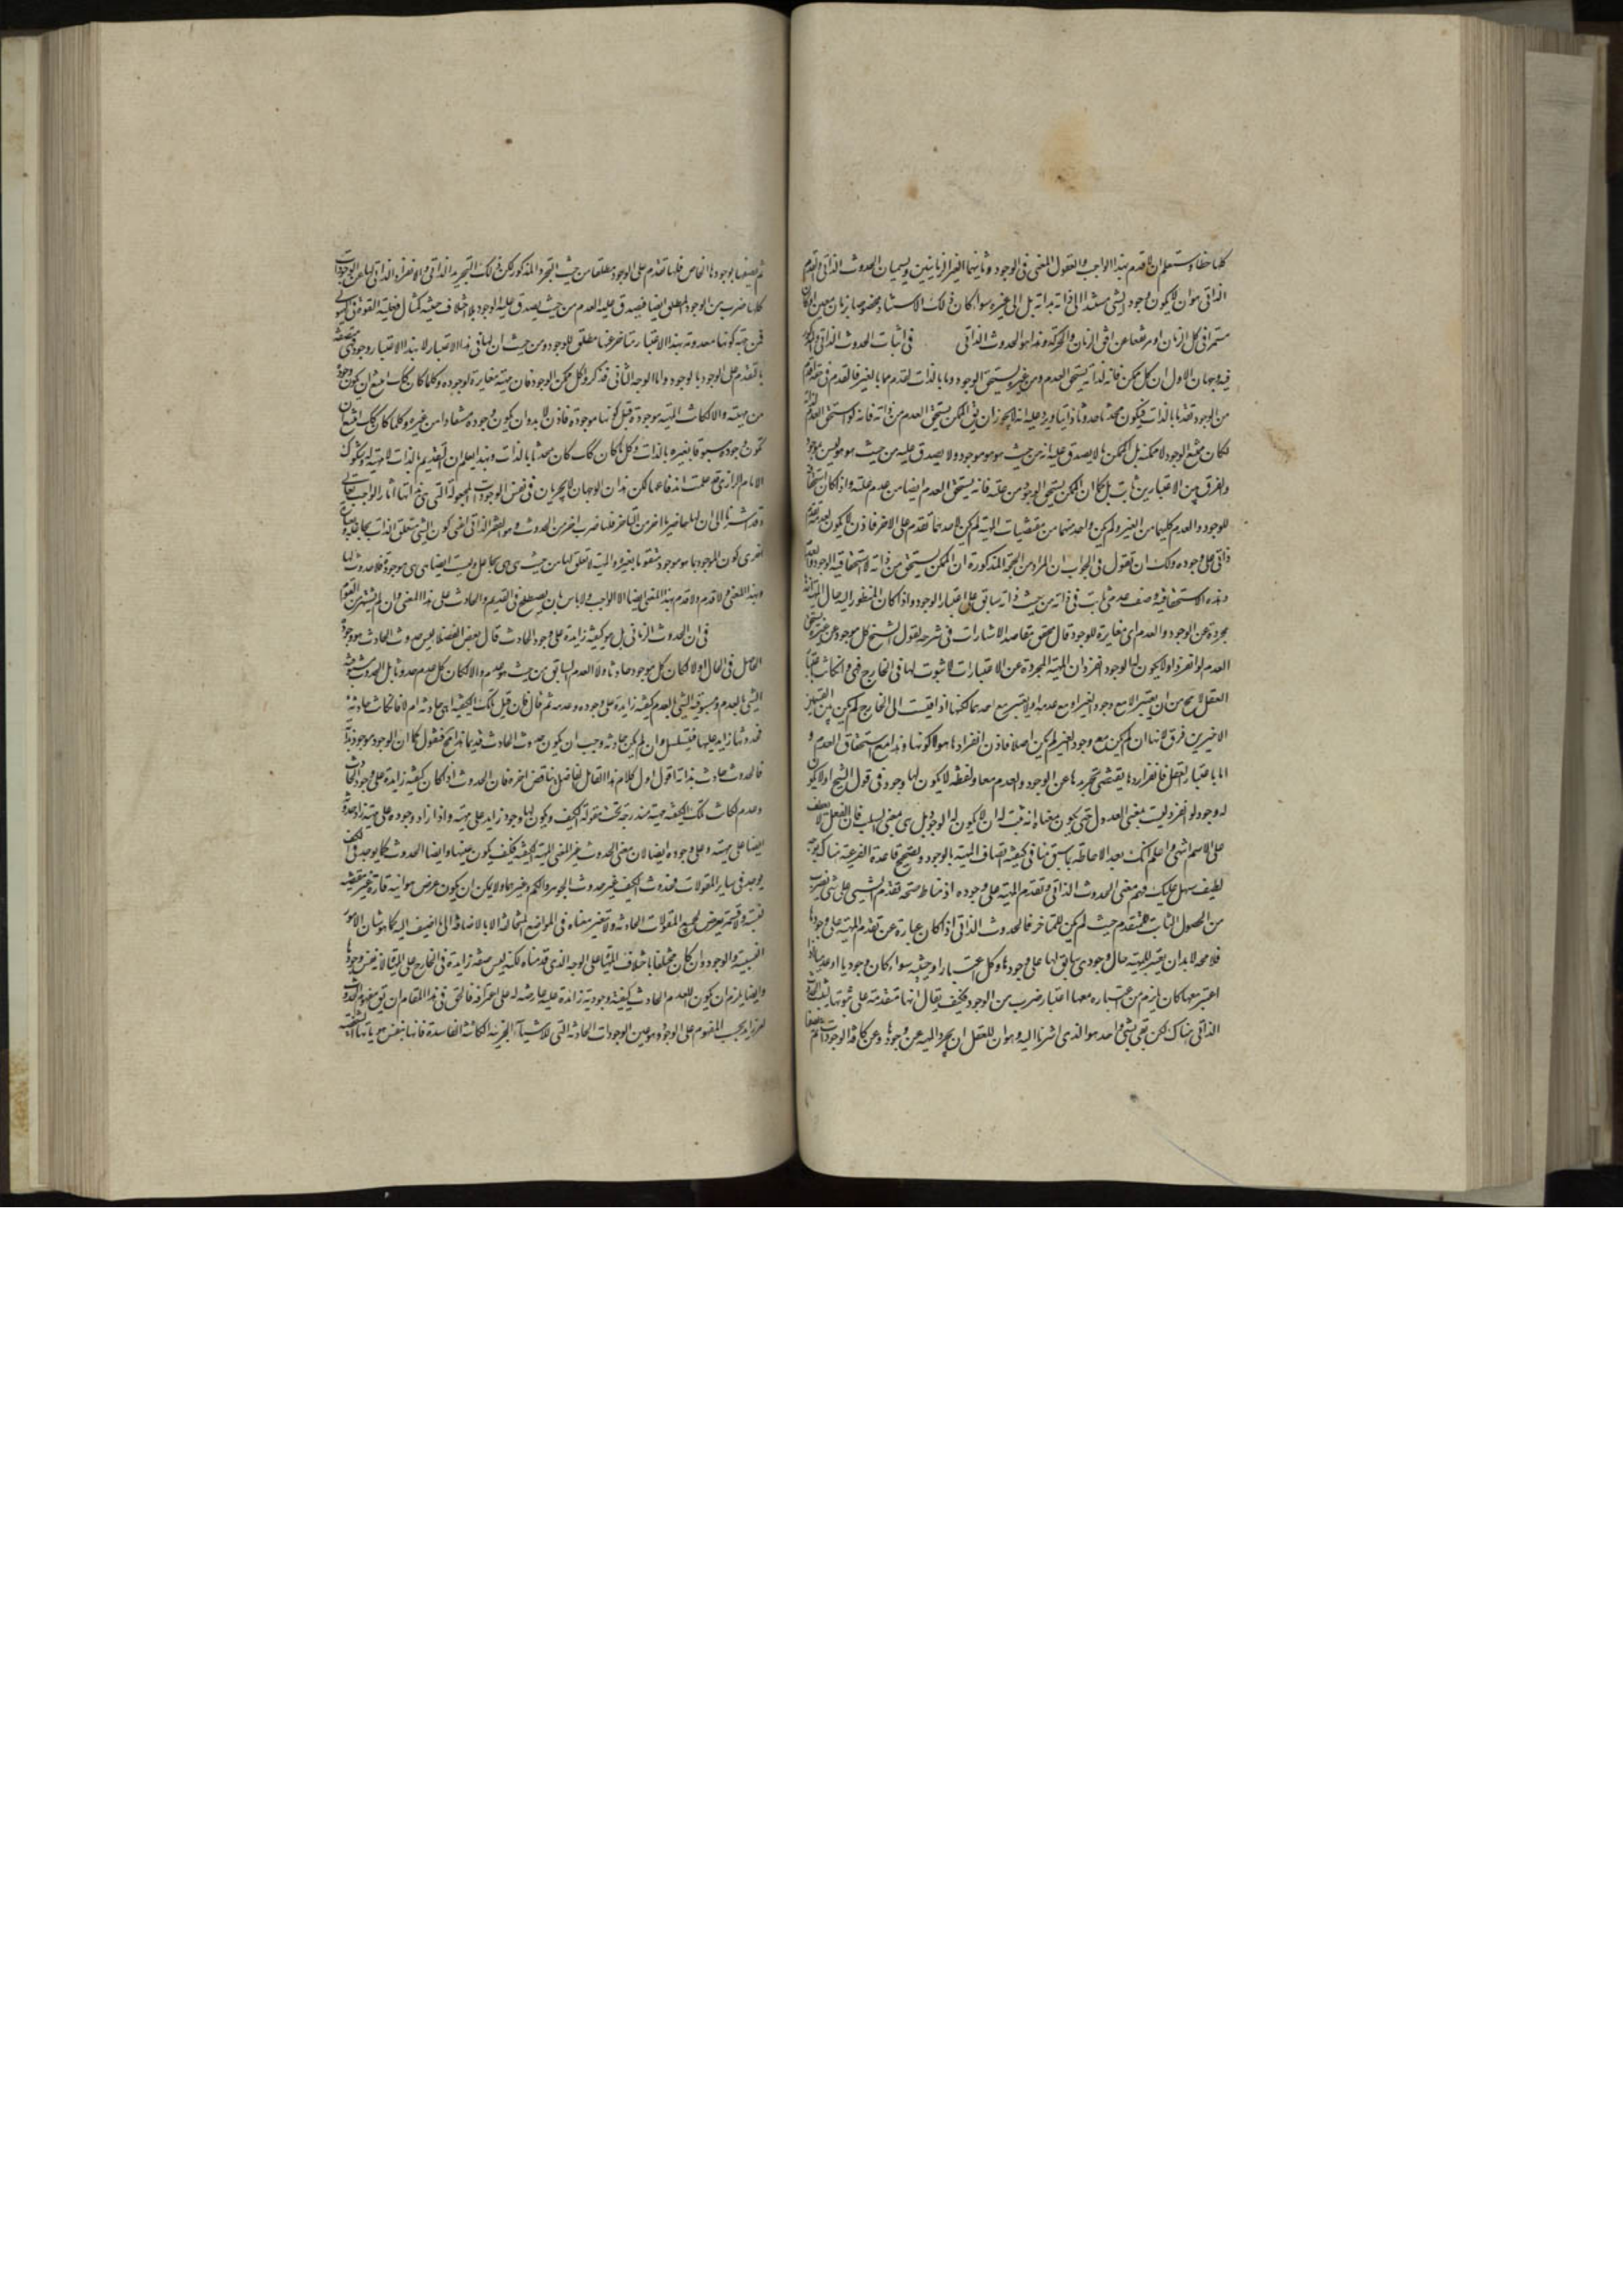 كلها حقا وستعلم ان لا قديم بهذا الواجب والعقول المعنى فى الوجود وثانيهما الغير الزمانيين ويسميان الحدوث الذاتى والقدم
الذاتى هو ان لا يكون وجود الشى مستندا الى ذاته بذاته بل الى غيره سواء كان ذلك الاستناد مخصوصا بزمان معين او كان
مستمرا فى كل الزمان او مرتفعا عن افق الزمان والحركة وهذا هو الحدوث الذاتى فى اثبات الحدوث الذاتى
فيه وجهان الاول ان كل ممكن فانه لذاته يستحق العدم ومن غيره يستحق الوجود وما بالذات اقدم مما بالغير فالعدم فى حقه اقدم
من الوجود تقدما بالذات فيكون محدثا حدوثا ذاتيا ويرد عليه انه لا يجوز ان يق الممكن يستحق العدم من ذاته فانه لو استحق العدم لذاته
لكان ممتنع الوجود لا ممكنه بل الممكن ما لا يصدق عليه انه من حيث هو هو موجود ولا يصدق عليه من حيث هو هو ليس بموجود
والفرق بين الاعتبارين ثابت بل كما ان الممكن يستحق الوجود من علته فانه يستحق العدم ايضا من عدم علته واذا كان استحقاقه
للوجود والعدم كليهما من الغير ولم يكن واحد منهما من مقتضيات المهية لم يكن لاحدهما تقدم على الاخر فاذن لا يكون لعدمه تقدم
ذاتى على وجوده ولك ان تقول فى الجواب ان المراد من الحجة المذكورة ان الممكن يستحق من ذاته لا استحقاقية الوجود والعدم
وهذه الاستحقاقية وصف عدمى ثابت فى ذاته من حيث ذاته سابق على اعتبار الوجود واذا كان المنظور اليه حال المهية
مجردة عن الوجود والعدم اى مغايرة للوجود قال محقق مقاصد الاشارات فى شرحه لقول الشيخ كل موجود عن غيره يستحق
العدم لو انفرد او لا يكون له الوجود لو انفرد ان المهية المجردة عن الاعتبارات لا ثبوت لها فى الخارج فهى وان كانت باعتبار
العقل لا يخ من ان يعتبر الا مع وجود الغير او مع عدمه او لا يعتبر مع احدهما لكنها اذا قيست الى الخارج لم يكن بين القسمين
الاخيرين فرق لانها ان لم يكن مع وجود الغير لم يكن اصلا فاذن انفرادها هو لا كونها وهذا مع استحقاق العدم و
اما باعتبار العقل فانفرادها يقتضى تجريدها عن الوجود والعدم معا ولفظه لا يكون لها وجود فى قول الشيخ او لا يكون
له وجود لو انفرد ليست بمعنى العدول حتى يكون معناه انه يثبت له ان لا يكون له الوجود بل هى بمعنى السلب فان الفعل لا يعطف
على الاسم انتهى واعلم انك بعد الاحاطة بما سبق منا فى كيفية اتصاف المهية بالوجود وتصحيح قاعدة الفرعية هناك بوجه
لطيف سهل عليك فهم معنى الحدوث الذاتى وتقدم المهية على وجوده اذ مناط صحة تقدم الشيئ على شئ بضرب
من الحصول الثابت للمتقدم حيث لم يكن للمتاخر فالحدوث الذاتى اذا كان عبارة عن تقدم المهية على وجودها
فلا محه لا بد ان يعتبر للمهية حال وجودى سابق لها على وجودها وكل اعتبار او حيثية سواء كان وجوديا او عدميا
اعتبر معها كان يلزم من اعتباره معها اعتبار ضرب من الوجود فكيف يقال انها متقدمة على ثبوتها ليثبت الحدوث
الذاتى هناك لكن بقى شئ واحد هو الذى اشرنا اليه وهو ان للعقل ان يجرد المهية عن وجودها وعن كافة الوجودات
ثم يصفها بوجودها الخاص فلها تقدم على الوجود مطلقا من حيث التجرد المذكور لكن ذلك التجريد الذاتى والانفراد الذاتى لها عن الوجودات
كلها ضرب من الوجود المطلق ايضا فيصدق عليه العدم من حيث يصدق عليه الوجود بلا اختلاف حيثية كمثال فعلية القوة فى الهيولى
فمن حيث كونها معدومة بهذا الاعتبار متاخر عنها مطلق الوجود ومن حيث ان لها فى هذا الاعتبار لا بهذا الاعتبار وجود فهى متصفة
بالتقدم على الوجود بالوجود واما الوجه الثانى فذكروا كل ممكن الوجود فان مهيته مغايرة لوجوده وكلما كان كك امتنع ان يكون وجوده
من مهيته والا لكانت المهية موجودة قبل كونها موجودة فاذن لا بد وان يكون وجوده مستفادا من غيره وكلما كان كك امتنع ان
يكون وجوده مسبوقا بغيره بالذات وكل ما كان كك كان محدثا بالذات وبهذا يعلم ان القديم بالذات لا مهية له وشكوك
الامام الرازى قد علمت اندفاعها لكن هذان الوجهان لا يجريان فى نفس الوجودات المجعولة التى هى بذواتها اثار الواجب تعالى
وقد اشرنا الى ان لها ضربا اخر من التاخر فلها ضرب اخر من الحدوث وهو الفقر الذاتى اعنى كون الشئ متعلق الذات بجاعله وبعبارة
اخرى كون الموجود بما هو موجود متقوما بغيره والمهية لا تعلق لها من حيث هى هى بجاعل وليست ايضا هى هى موجودة فلا حدوث لها
بهذا المعنى ولا قدم ولا قديم بهذا المعنى ايضا الا الواجب ولا باس بان يصطلح فى القديم والحادث على هذا المعنى وان لم يشتهر من القوم
فى ان الحدوث الزمانى هل هو كيفية زايدة على وجود الحادث قال بعض الفضلا ليس حدوث الحادث هو وجوده
الحاصل فى الحال والا لكان كل موجود حادثا ولا العدم السابق من حيث هو عدم والا لكان كل عدم حدوثا بل الحدوث مسبوقية
الشئ بالعدم ومسبوقية الشئ بالعدم كيفية زايدة على وجوده وعدمه ثم قال فان قيل تلك الكيفية اهى حادثة ام لا فان كانت حادثة
فحدوثها زايد عليها فيتسلسل وان لم يكن حادثة وجب ان يكون حدوث الحادث قديما هذا خلف فنقول كما ان الوجود موجود بذاته
فالحدوث حادث بذاته اقول اول كلام هذا القائل الفاضل يناقض اخره فان الحدوث اذا كان كيفية زايدة على وجود الحادث
وعدمه كانت تلك الكيفية مهية مندرجة تحت مقولة الكيف ويكون لها وجود زايد على مهيته واذا زاد وجوده على مهيته زاد حدوثه
ايضا على مهيته وعلى وجوده ايضا لان معنى الحدوث غير المعنى المهية الكيفية فكيف يكون عينها وايضا الحدوث كما يوجد فى الكيف
يوجد فى ساير المقولات فحدوث الكيف غير حدوث الجوهر والكم وغيرهما ولا يمكن ان يكون عرض هو انية قارة غير مقتضية
لقسمة ونسبة يعرض لجميع المقولات الحادثة ولا يتغير معناه فى المواضع المتخالفة الا بالاضافة الى ما اضيف اليه كما هو شان الامور
النسبية والوجود وان كان مختلفا باختلاف المهيات على الوجه الذى قدمناه لكنه ليس صفة زايدة فى الخارج على المهيات لانه نفس وجودها
وايضا يلزم ان يكون للعدم الحادث كيفية وجودية زائدة عليه عارضة له على اعترافه فالحق فى هذا المقام ان يق مفهوم الحدوث
امر زايد بحسب المفهوم على الوجود وهو عين الوجودات الحادثة التى للاشياء الجزئية الكائنة الفاسدة فانها بنفس هوياتها